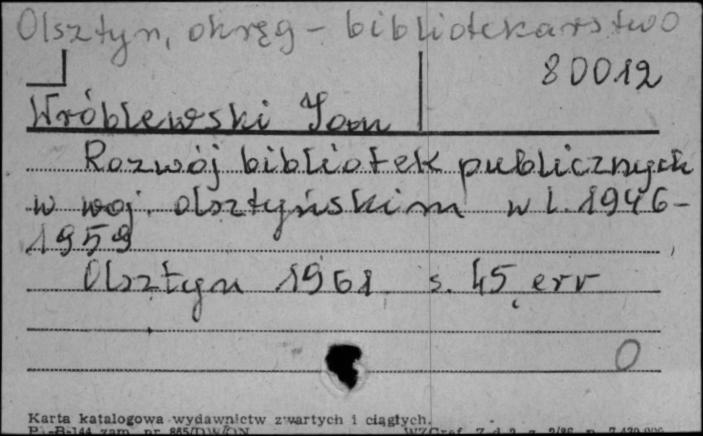 Olsztyn, okręg - bibliotekarstwo
80012
Wróblewski Jan
Rozwój bibliotek publicznych
w woj. olsztyńskim w l. 1946-
1959
Olsztyn 1961 s. 45, err
0
Karta katalogowa wydawnictw zwartych i ciągłych.